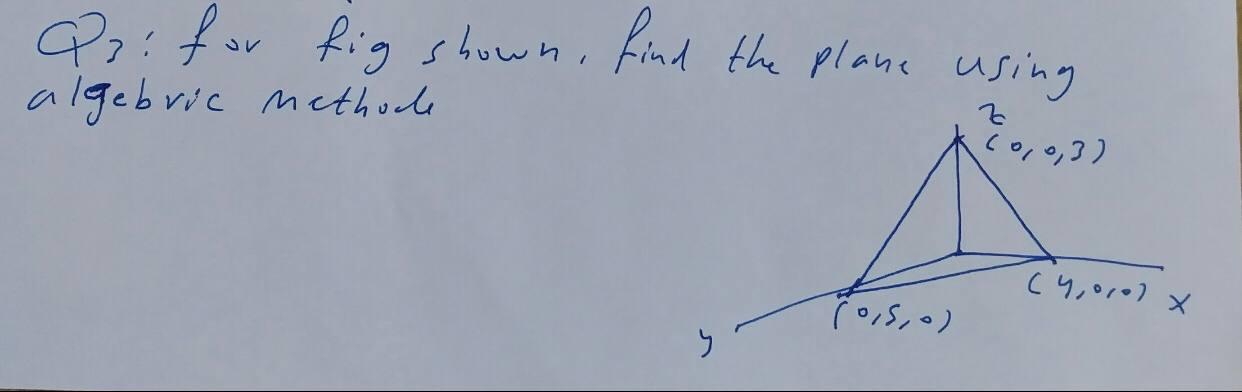 Q3: for fig shown, find the plane using
algebric methode
z
(0,0,3)
(4,0,0) x
(0,5,0)
y